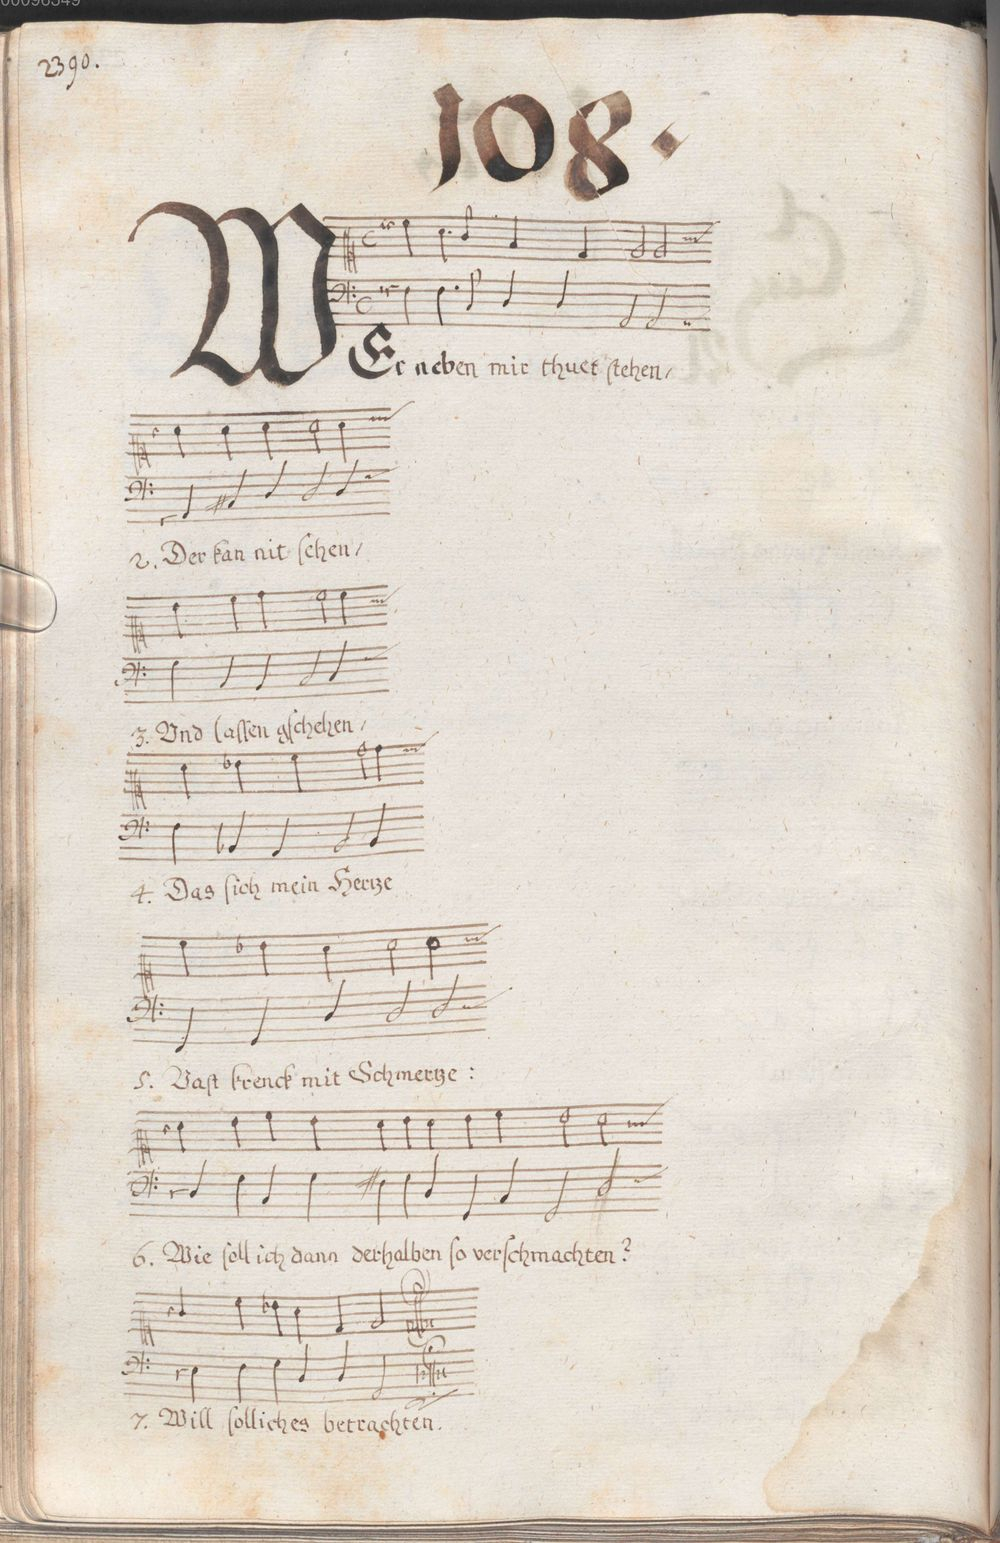 00096549
2390.
108.
WEr neben mir thuet stehen/
2. Der kan nit sehen/
3. Vnd lassen gschehen/
4. Das sich mein Hertze
5. Vast krenck mit Schmertze:
6. Wie soll ich dann derhalben so verschmachten?
7. Will solliches betrachten.